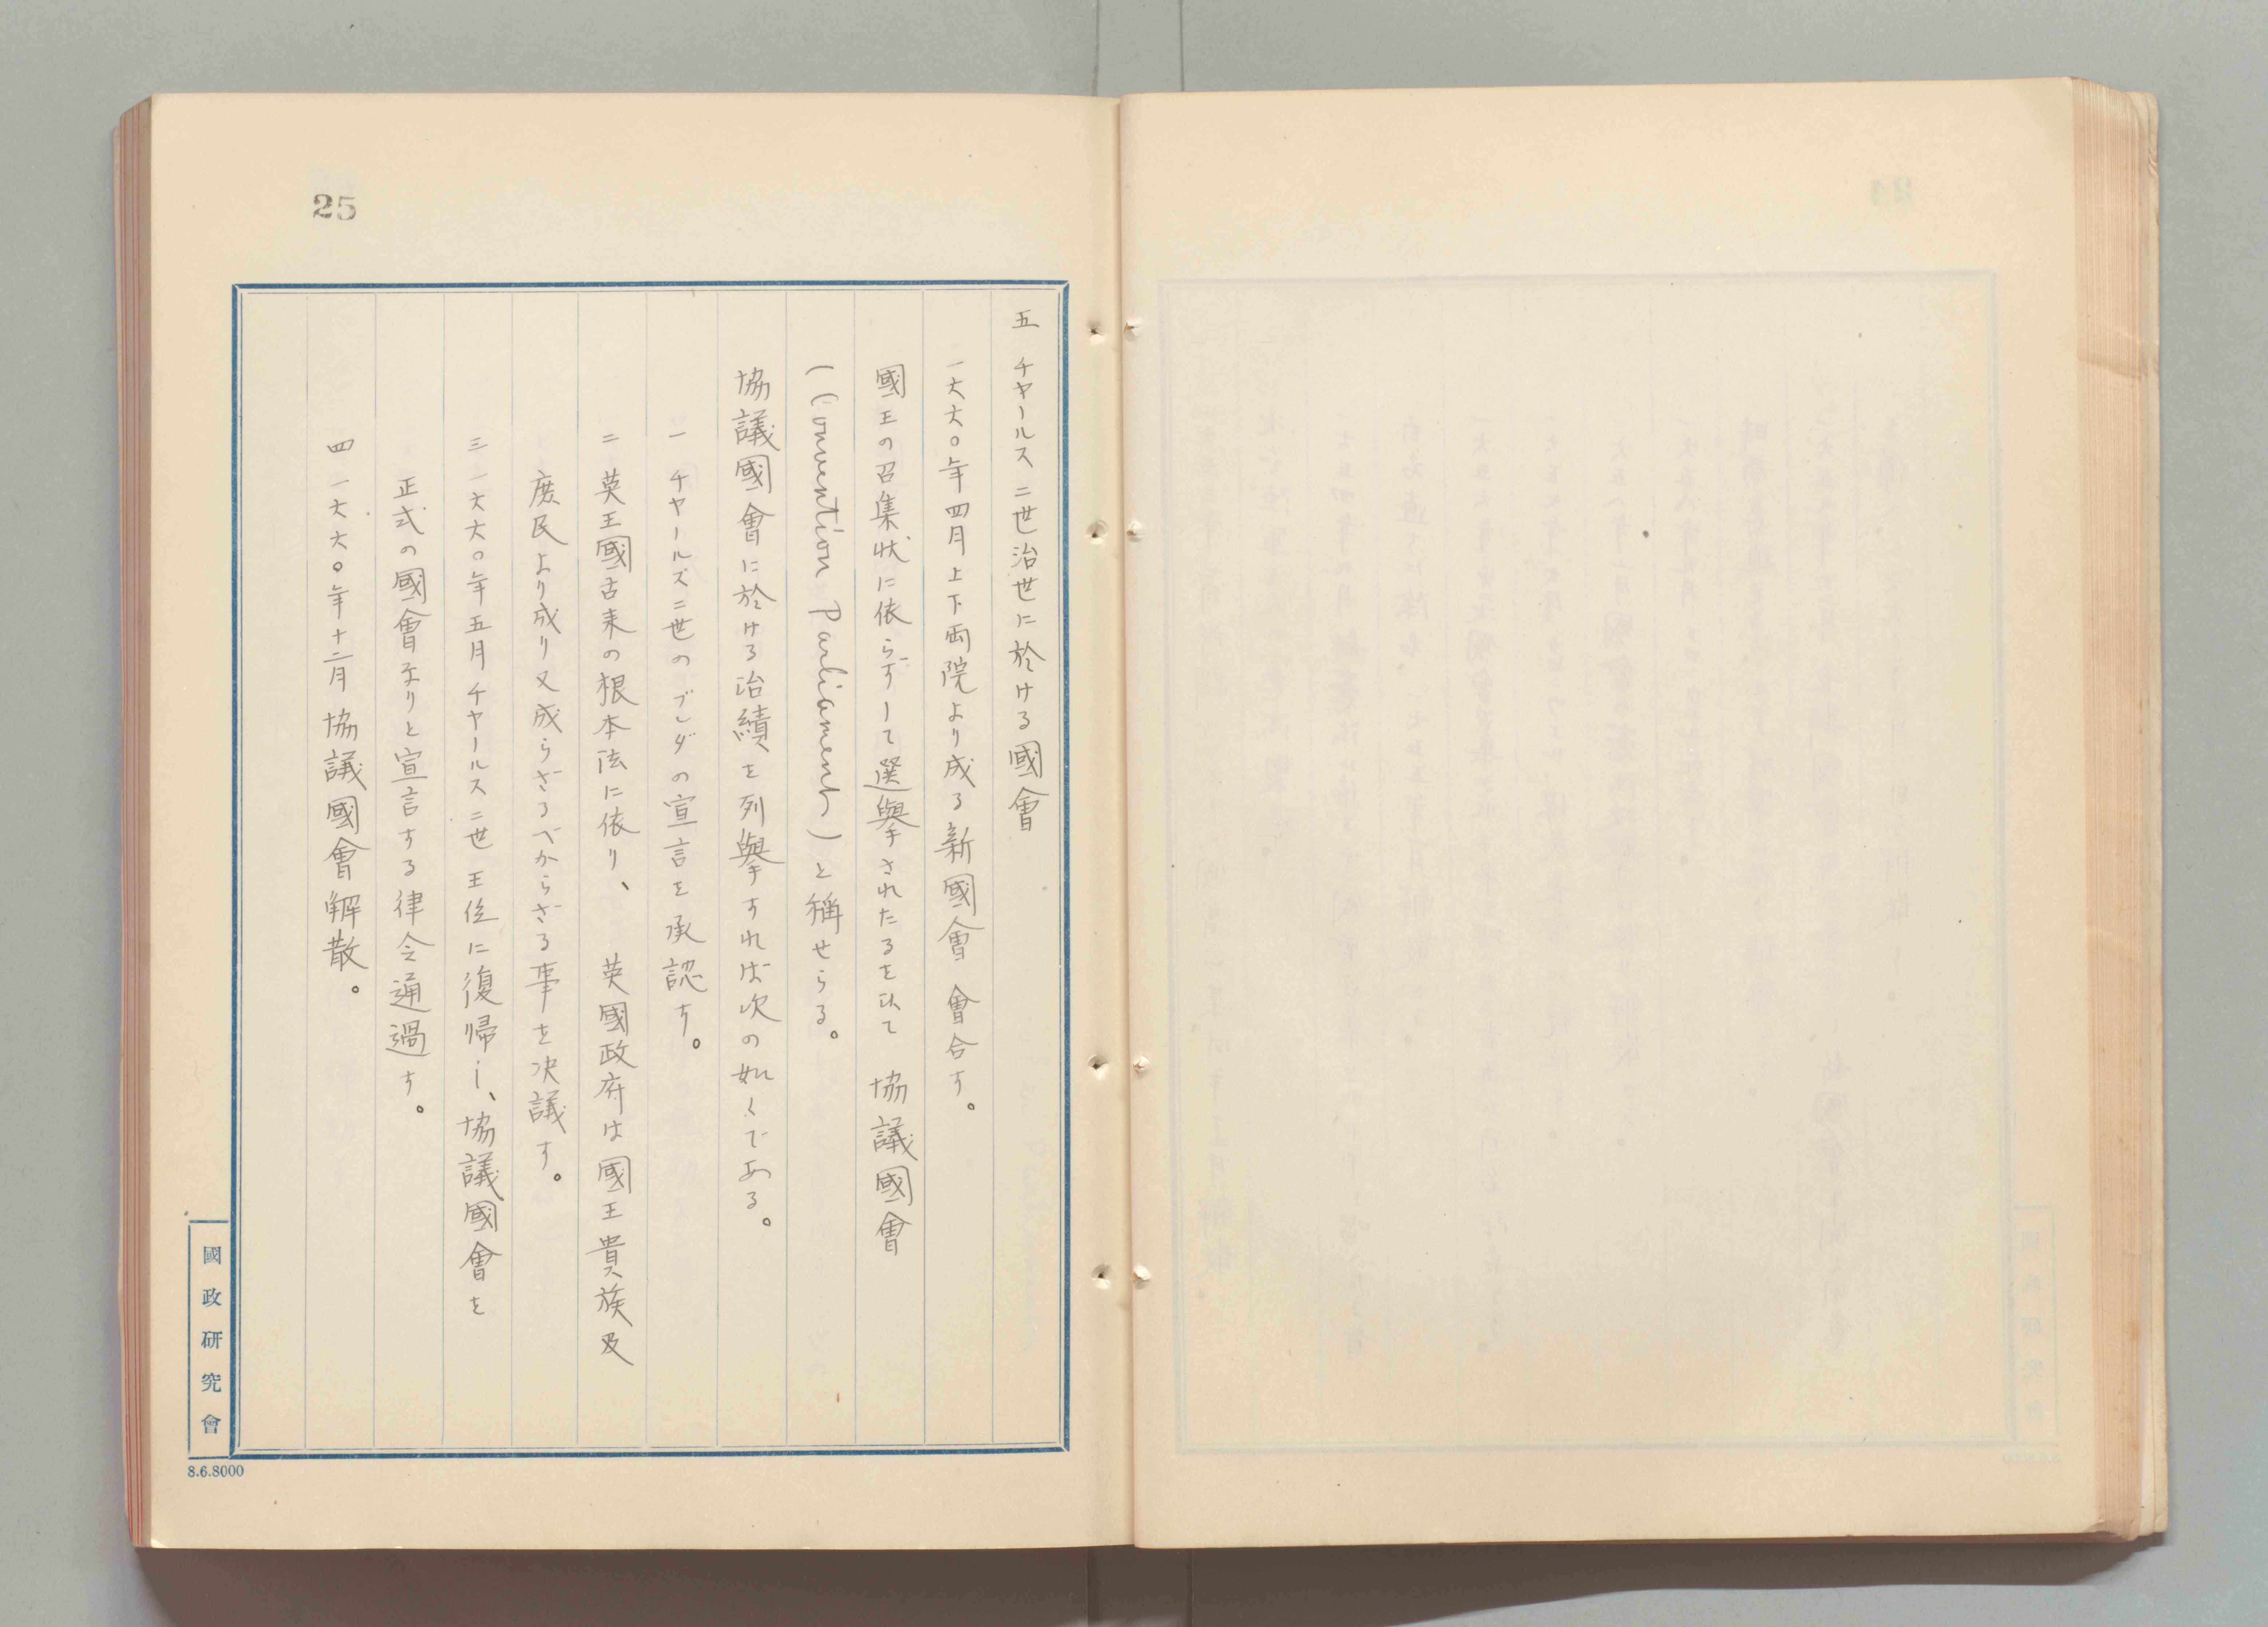 25
五 チャールス二世治世に於ける國會
一六六〇年四月上下両院より成る新國會會合す。
國王の召集状に依らずして選擧されたるを以て 協議國會
(Convention Parliament)と稱せらる。
協議國會に於ける治績を列擧すれば次の如くである。
一 チャールズ二世のブレダの宣言を承認す。
二 英王國古来の根本法に依り、 英國政府は國王貴族及
庶民より成り又成らざるべからざる事を决議す。
三 一六六〇年五月チャールス二世王位に復帰し、協議國會を
正式の國會なりと宣言する律令通過す。
四 一六六〇年十二月 協議國會解散。
國政研究會
8.6.8000